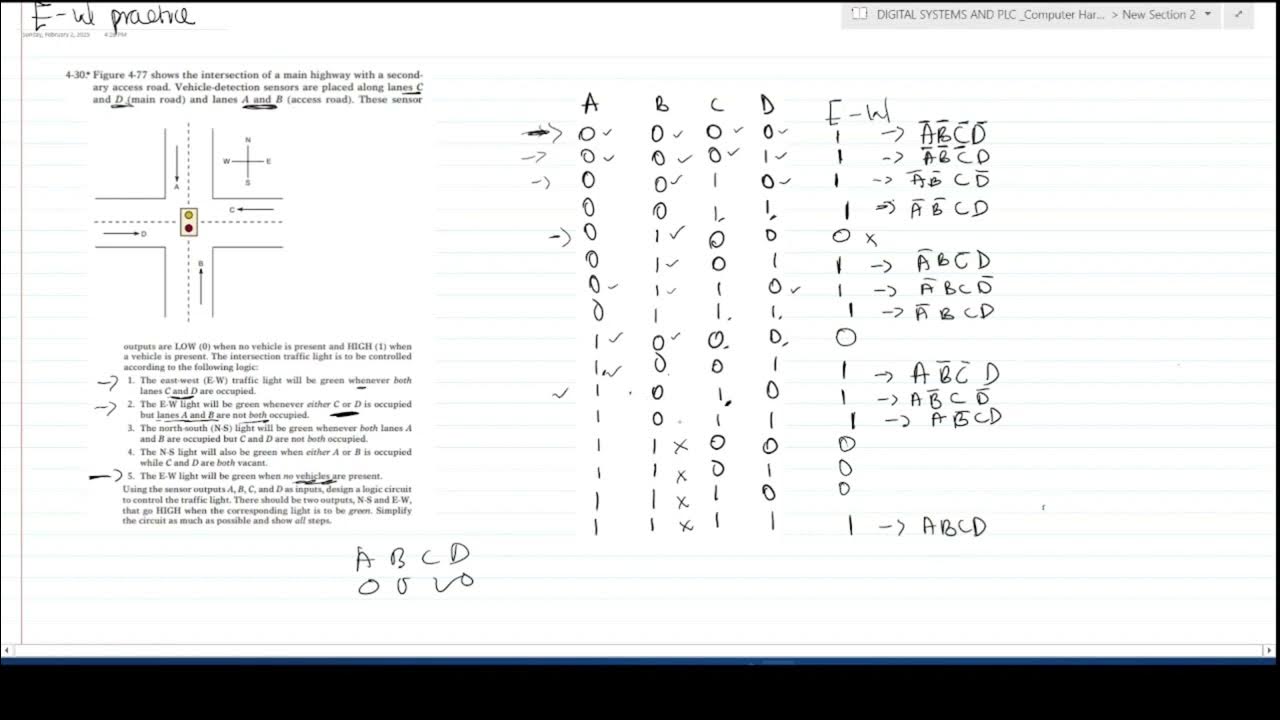 E-W practice
Sunday, February 2, 2025 4:28 PM
DIGITAL SYSTEMS AND PLC _Computer Har... > New Section 2
4-30.* Figure 4-77 shows the intersection of a main highway with a second-
ary access road. Vehicle-detection sensors are placed along lanes C
and D (main road) and lanes A and B (access road). These sensor
N
W E
S
A
C
D
B
outputs are LOW (0) when no vehicle is present and HIGH (1) when
a vehicle is present. The intersection traffic light is to be controlled
according to the following logic:
1. The east-west (E-W) traffic light will be green whenever both
lanes C and D are occupied.
2. The E-W light will be green whenever either C or D is occupied
but lanes A and B are not both occupied.
3. The north-south (N-S) light will be green whenever both lanes A
and B are occupied but C and D are not both occupied.
4. The N-S light will also be green when either A or B is occupied
while C and D are both vacant.
5. The E-W light will be green when no vehicles are present.
Using the sensor outputs A, B, C, and D as inputs, design a logic circuit
to control the traffic light. There should be two outputs, N-S and E-W,
that go HIGH when the corresponding light is to be green. Simplify
the circuit as much as possible and show all steps.
A B C D
0 0 0
A B C D E-W
→ 0 ✓ 0 ✓ 0 ✓ 0 ✓ 1 → A̅B̅C̅D̅
→ 0 ✓ 0 ✓ 0 ✓ 1 ✓ 1 → A̅B̅C̅D
→ 0 0 ✓ 1 0 ✓ 1 → A̅B̅CD̅
0 0 1 1 1 → A̅B̅CD
→ 0 1 ✓ 0 0 0 x
0 1 ✓ 0 1 1 → A̅BC̅D
0 ✓ 1 ✓ 1 0 ✓ 1 → A̅BCD̅
0 1 1 1 1 → A̅BCD
1 ✓ 0 ✓ 0 0 0
1 ✓ 0 0 1 1 → AB̅C̅D
✓ 1 0 1 0 1 → AB̅CD̅
1 0 1 1 1 → AB̅CD
1 1 x 0 0 0
1 1 x 0 1 0
1 1 x 1 0 0
1 1 x 1 1 1 → ABCD